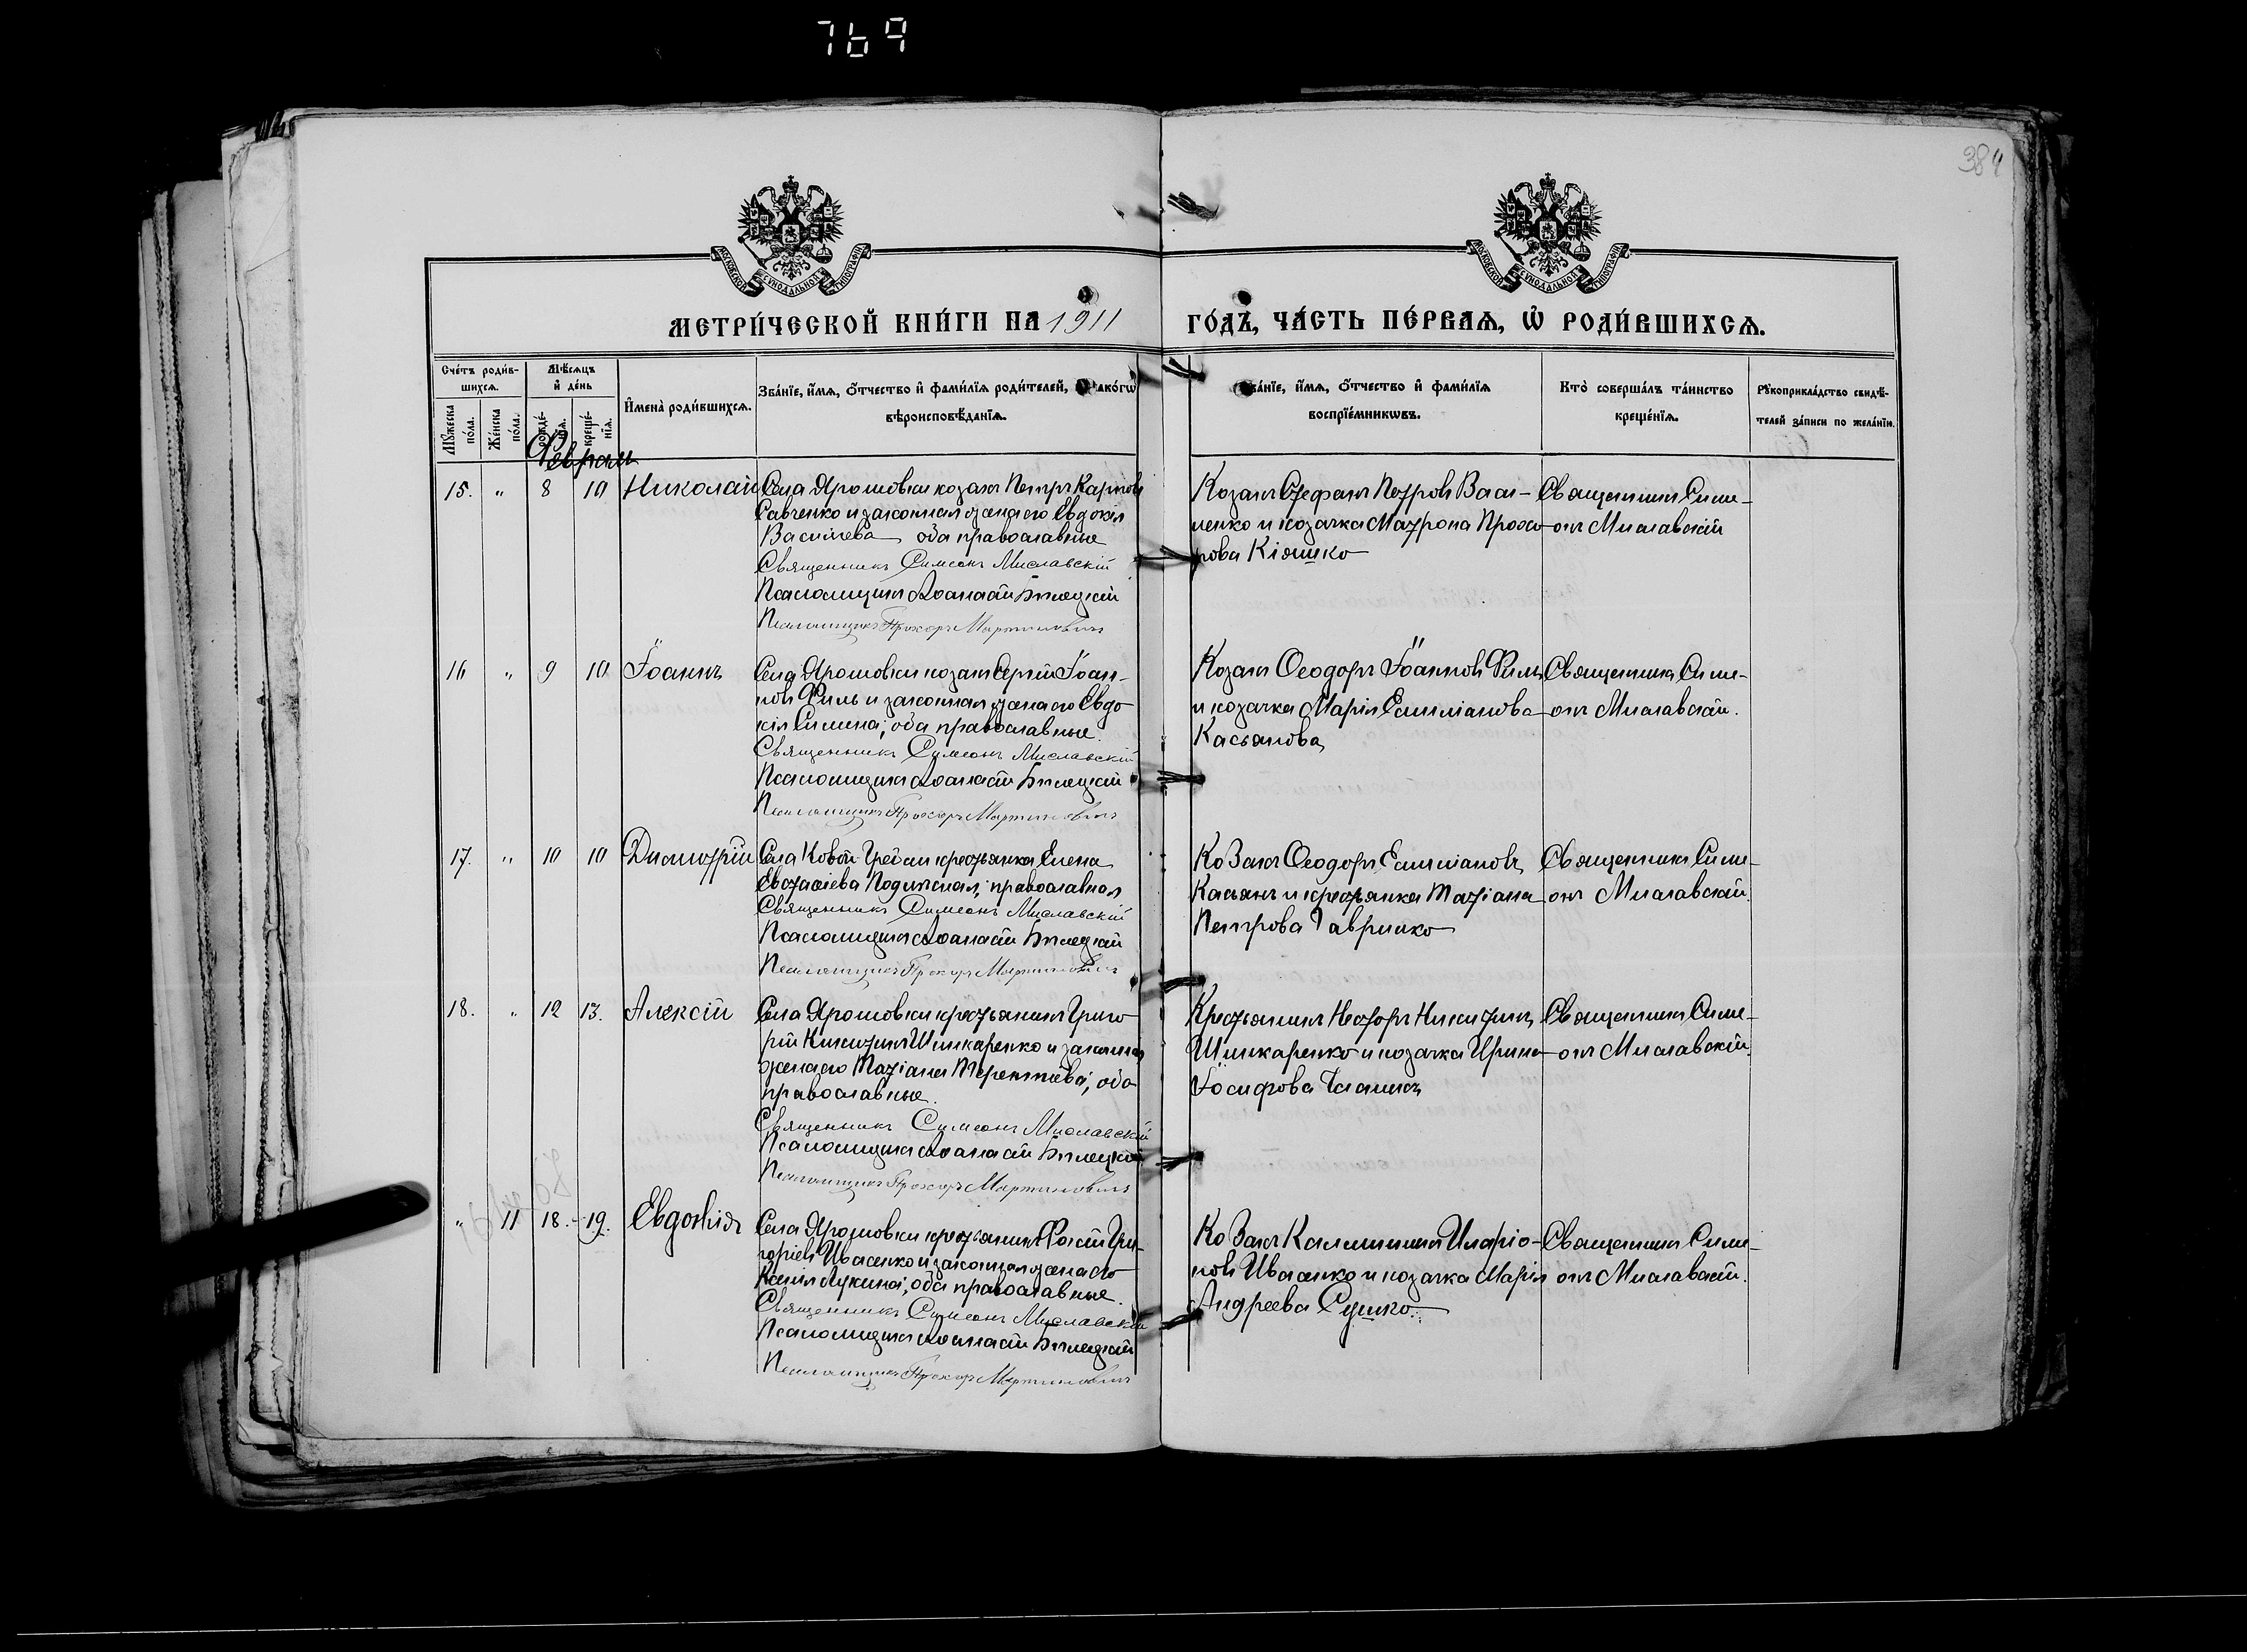 769
384
МОСКОВСКОЙ СѴНОДАЛЬНОЙ ТИПОГРАФІИ
МОСКОВСКОЙ СѴНОДАЛЬНОЙ ТИПОГРАФІИ
МЕТРИ́ЧЕСКОЙ КНИ́ГИ НА 1911 ГО́ДЪ, ЧА́СТЬ ПЕ́РВАѦ, Ѡ҆ РОДИ́ВШИХСѦ.
Сче́тъ роди́в-
шихсѧ.
Мꙋ́жеска по́ла.
Же́нска по́ла.
Мѣ́сѧцъ
и҆ де́нь
рожде́-
нїѧ.
креще́-
нїѧ.
И҆мена̀ роди́вшихсѧ.
Зва́нїе, и҆́мѧ, ѻ҆́тчество и҆ фами́лїѧ роди́телей, и҆ како́гѡ
вѣроисповѣ́данїѧ.
Зва́нїе, и҆́мѧ, ѻ҆́тчество и҆ фами́лїѧ
воспрїе́мникѡвъ.
Кто̀ соверша́лъ та́инство
креще́нїѧ.
Рꙋкоприкла́дство свидѣ́-
телей за́писи по жела́нїю.
Февраль
15. „ 8 10 Николай
Села Ярошовки козакъ Петръ Карповъ
Савченко и законная жена его Евдокія
Васильева оба православные
Священникъ Симеонъ Миславскій
Псаломщикъ Аѳанасій Билецкій
Псаломщикъ Прохоръ Мартиновичъ
Козакъ Стефанъ Петровъ Васи-
ленко и козачка Матрона Прохо
рова Кіяшко
Священникъ Симе-
онъ Миславскій
16 „ 9 10 Іоаннъ
Села Ярошовки козакъ Сергій Іоан-
новъ Филь и законная жена его Евдо
кія Симина; оба православные.
Священникъ Симеонъ Миславскій
Псаломщикъ Аѳанасій Билецкій
Псаломщикъ Прохоръ Мартиновичъ
Козакъ Ѳеодоръ Іоанновъ Филь
и козачка Марія Емиліанова
Касьянова
Священникъ Симе-
онъ Миславскій.
17. „ 10 10 Димитрій
Села Новой Гребли крестьянка Елена
Евстафіева православная
Священникъ Симеонъ Миславскій
Псаломщикъ Аѳанасій Билецкій
Псаломщикъ Прохоръ Мартиновичъ
Козакъ Ѳеодоръ Емиліановъ
Касьянъ и крестьянка Татіана
Петрова Гавришко
Священникъ Симе-
онъ Миславскій.
18. „ 12 13. Алексій
Села Ярошовки крестьянинъ Григо
рій Никитинъ Шинкаренко и законная
жена его Татіана Терентіева; оба
православные.
Священникъ Симеонъ Миславскій
Псаломщикъ Аѳанасій Билецкій
Псаломщикъ Прохоръ Мартиновичъ
Крестьянинъ Несторъ Никитинъ
Шинкаренко и козачка Ирина
Іосифова
Священникъ Симе-
онъ Миславскій.
„ 11 18. 19. Евдокія
Села Ярошовки крестьянинъ Григ-
оріевъ Ивасенко и законная жена его
Ксенія Лукина; оба православные.
Священникъ Симеонъ Миславскій
Псаломщикъ Аѳанасій Билецкій
Псаломщикъ Прохоръ Мартиновичъ
Козакъ Калинникъ Иларіо-
новъ Ивасенко и козачка Марія
Андреева Сушко.
Священникъ Симе-
онъ Миславскій.